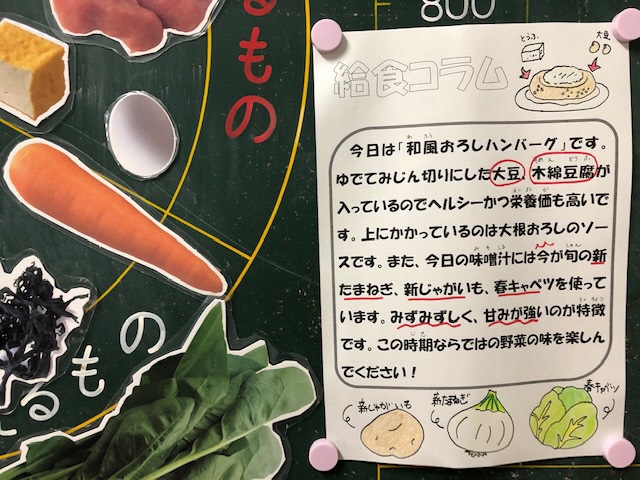 800
るもの
給食コラム
とうふ
大豆
今日は「和風おろしハンバーグ」です。
ゆでてみじん切りにした大豆、木綿豆腐が
入っているのでヘルシーかつ栄養価も高いで
す。上にかかっているのは大根おろしのソー
スです。また、今日の味噌汁には今が旬の新
たまねぎ、新じゃがいも、春キャベツを使って
います。みずみずしく、甘みが強いのが特徴
です。この時期ならではの野菜の味を楽しん
でください！
新じゃがいも
新たまねぎ
春キャベツ
るもの